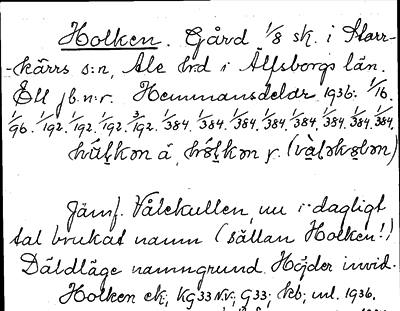 Holken. Gård 1/8 sk. i Starr-
-kärrs s:n, Ale hrd i Älfsborgs län.
Ett jb.n:r. Hemmansdelar 1936: 1/16.
1/96. 1/192. 1/192. 3/192. 1/384. 1/384. 1/384. 1/384. 1/384. 1/384. 1/384. 1/384.
å,
Jämf. Vålekullen, nu i dagligt
tal brukat namn (sällan Holken!)
Däldläge namngrund. Höjder invid.
Holken ek; KG33 N.V.; G33; kb; ml. 1936.